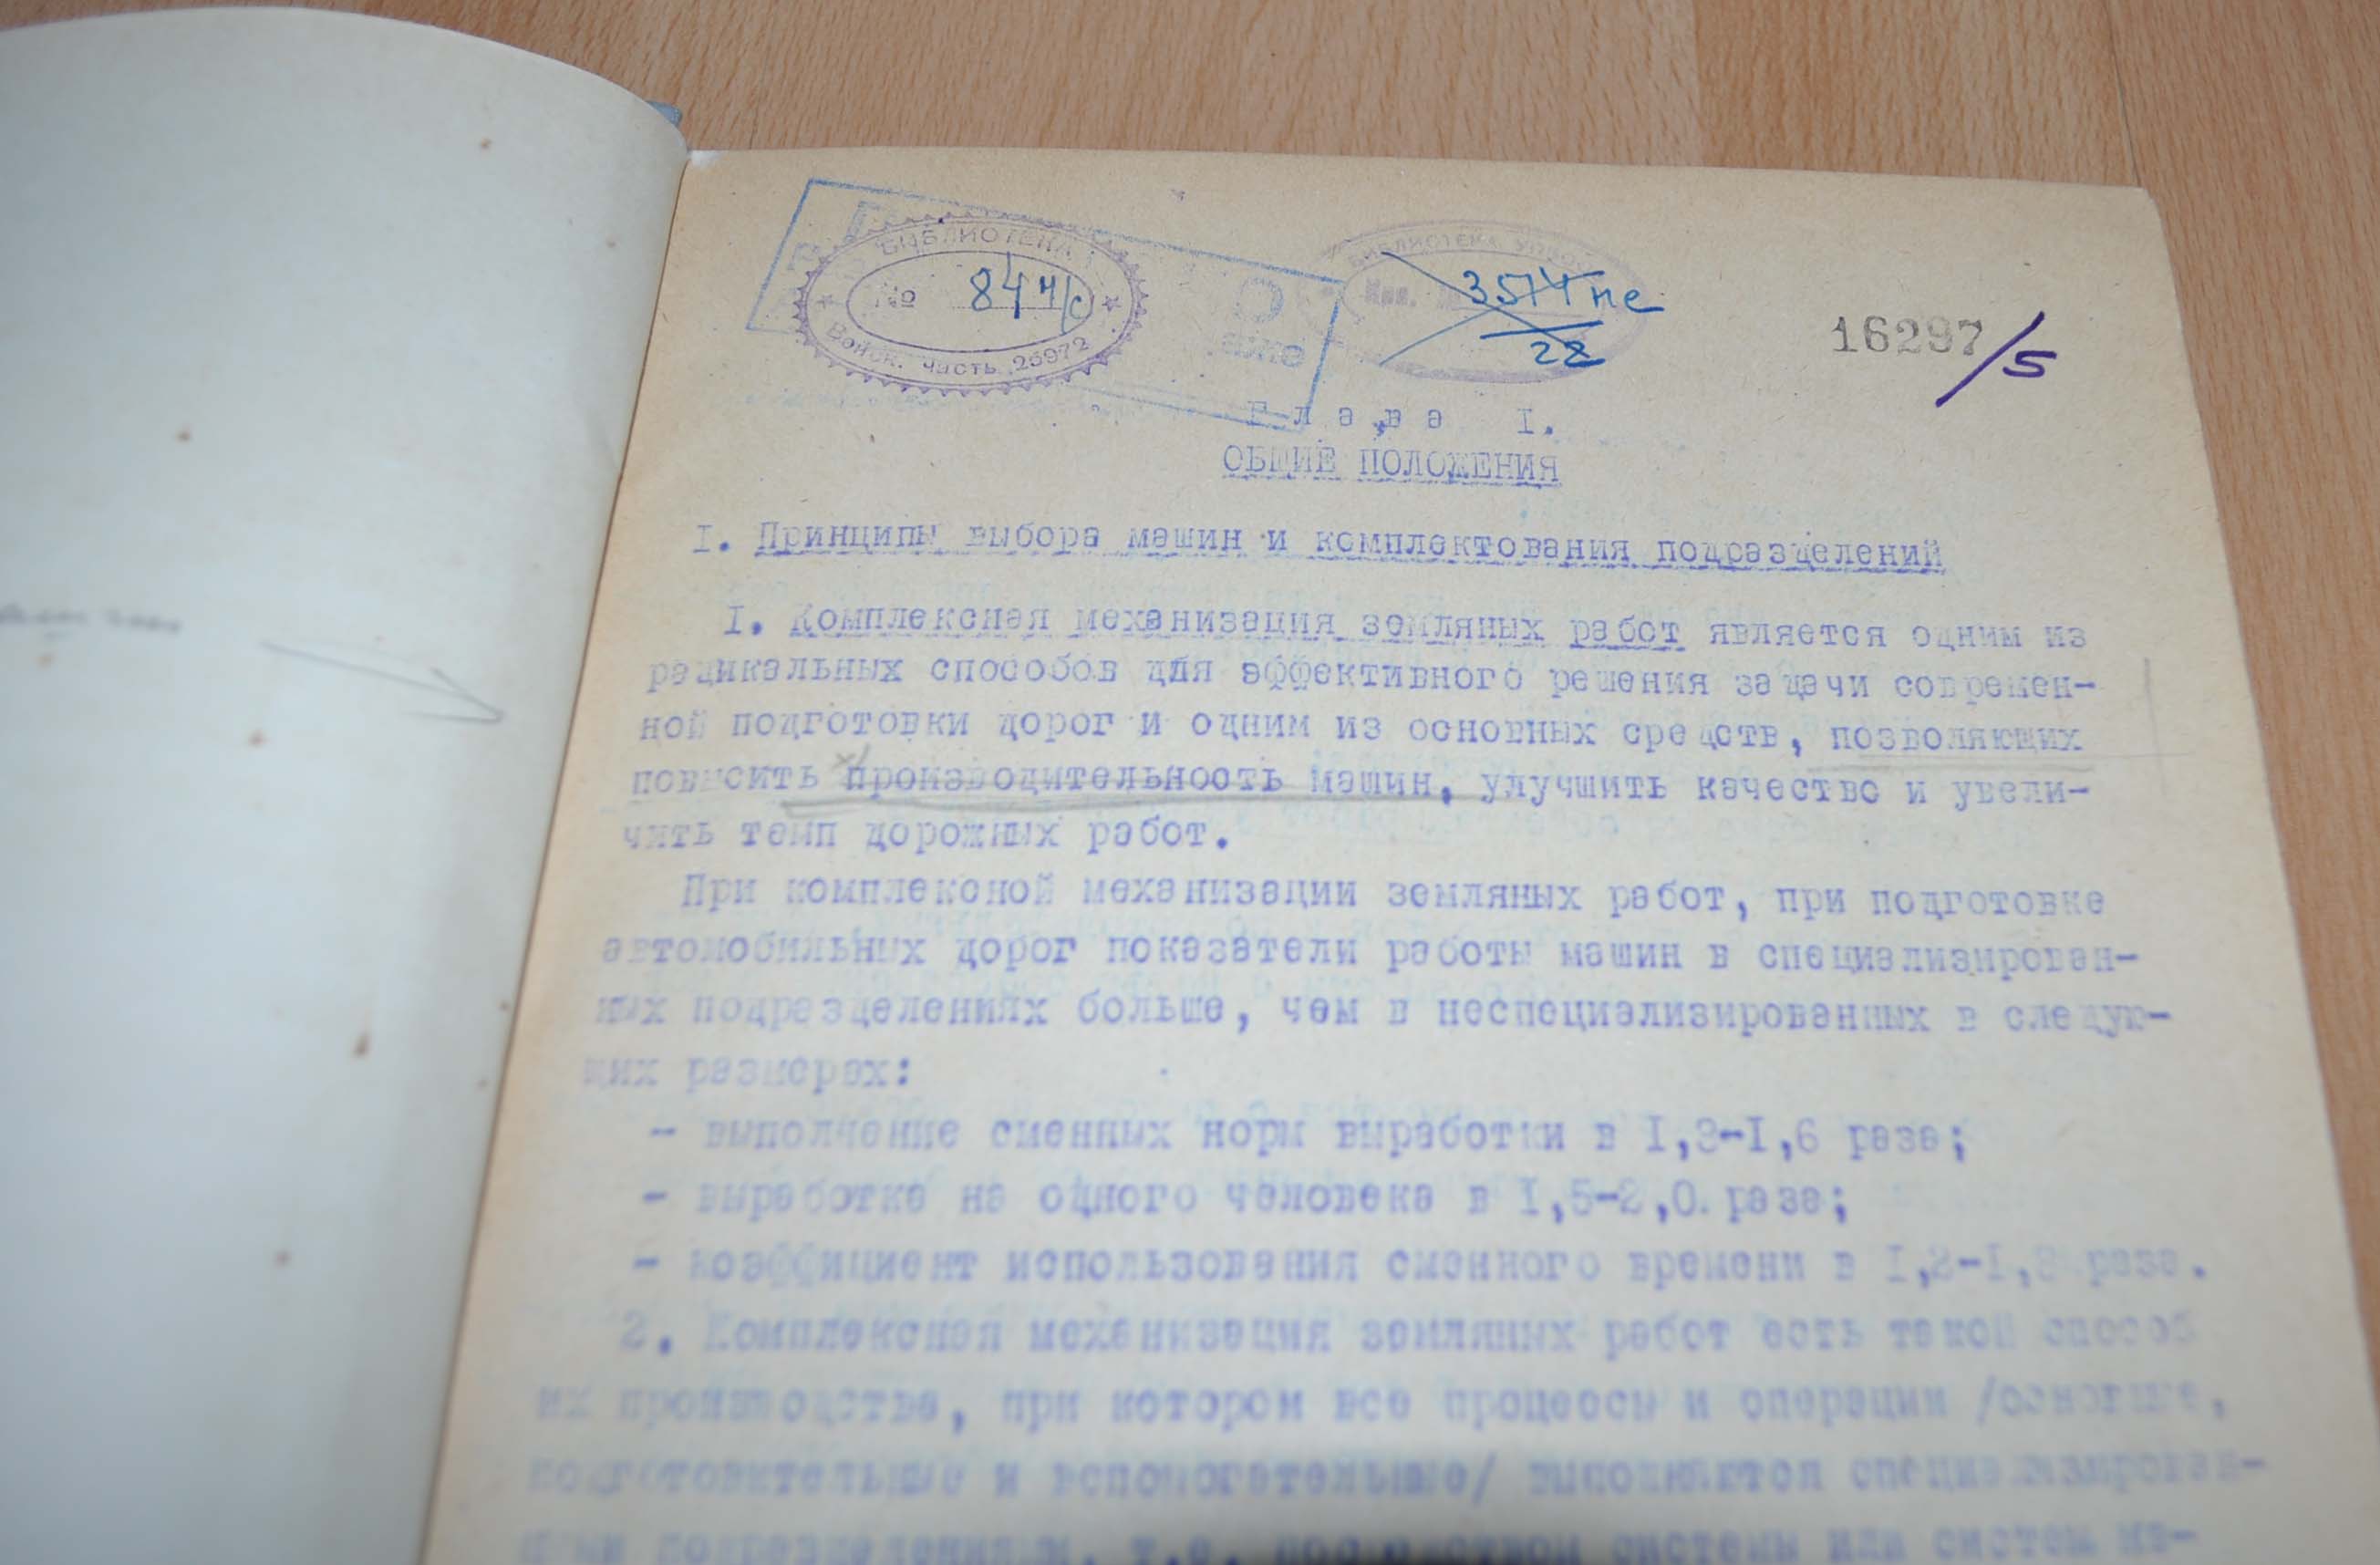 БИБЛИОТЕКА
№ 84 н/с
Войск. часть 25972
БИБЛИОТЕКА
Инв.
3574 пе
22
16297/5
Глава I.
ОБЩИЕ ПОЛОЖЕНИЯ
I. Принципы выбора машин и комплектования подразделений
I. Комплексная механизация земляных работ является одним из
радикальных способов для эффективного решения задачи современ-
ной подготовки дорог и одним из основных средств, позволяющих
повысить производительность машин, улучшить качество и увели-
чить темп дорожных работ.
При комплексной механизации земляных работ, при подготовке
автомобильных дорог показатели работы машин в специализирован-
ных подразделениях больше, чем в неспециализированных в следую-
щих размерах:
- выполнение сменных норм выработки в I,3-I,6 раза;
- выработка на одного человека в I,5-2,0 раза;
- коэффициент использования сменного времени в раза.
2. Комплексная механизация земляных работ есть такой способ
их производства, при котором все процессы и операции /основные,
подготовительные и вспомогательные/ выполняются специализирован-
ными подразделениями, т.е. посредством системы или систем ма-